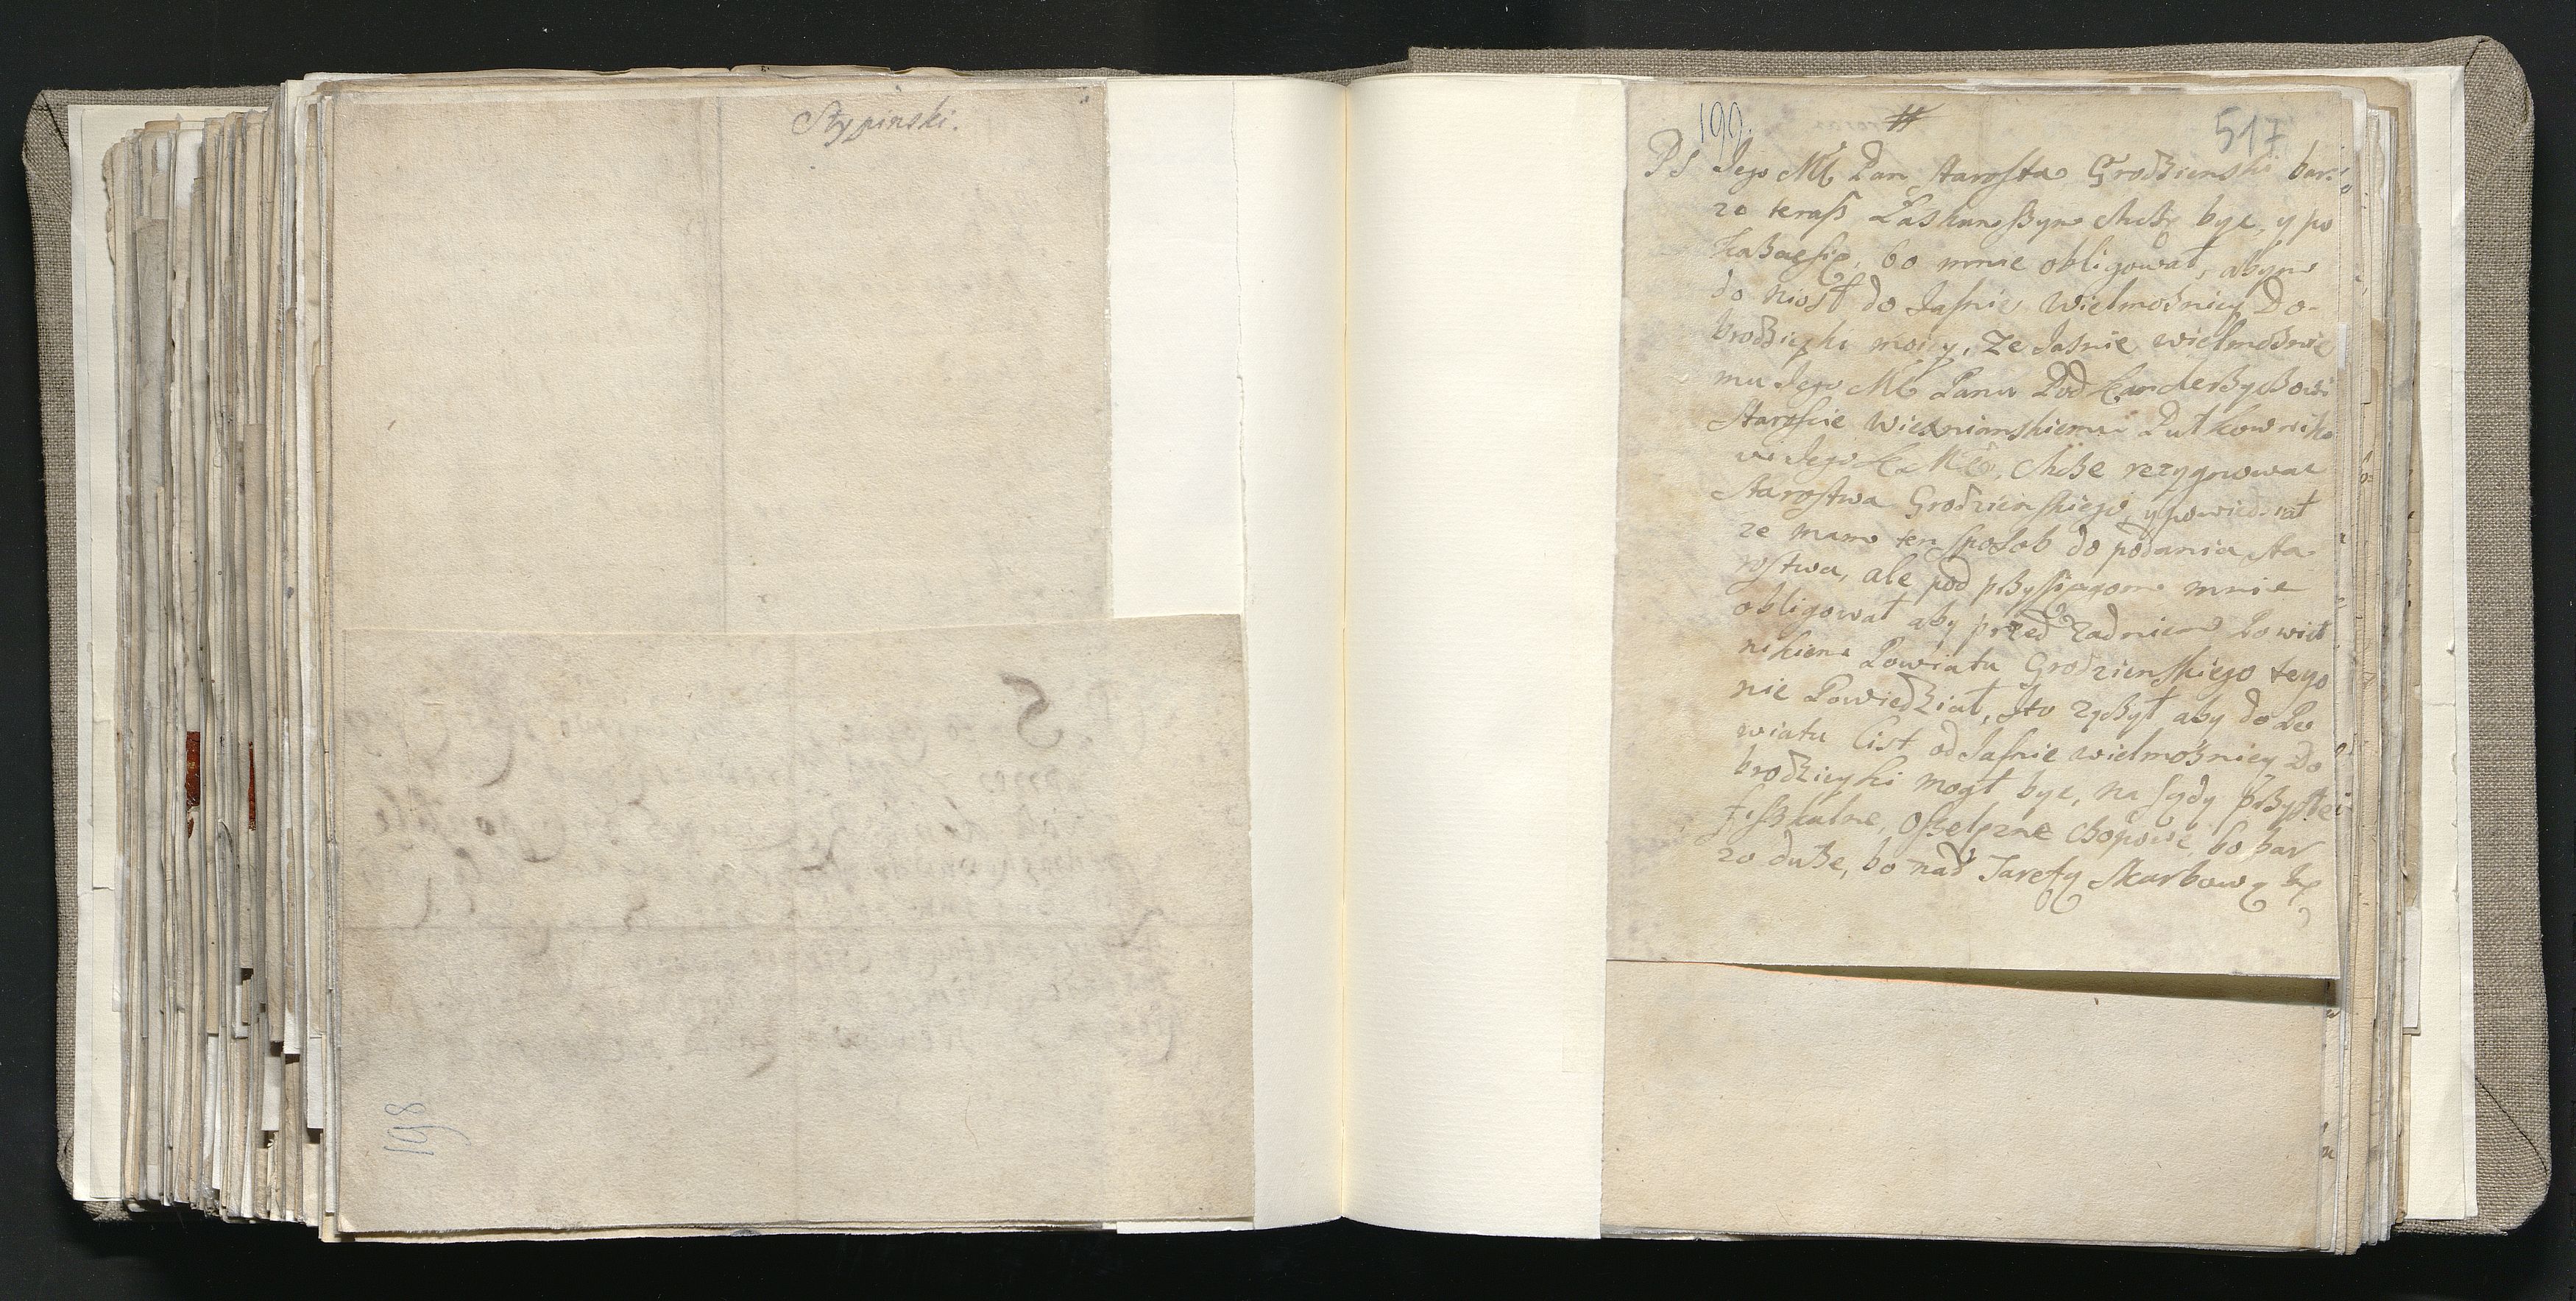 Stypinski.
198
199.
517
PS Jego Mć Pan Starosta Grodzienski bar
zo teraß Laskawßym chce byc, y po
kazaćsię, bo mnie obligował, abym
do niosł do Jasnie Wielmozniey Do-
brodzieyki moiey, Ze Jasnie wielmoznie
mu Jego Mć Panu Podkanclerzyczowi
Staroscie Wieznianskiemu Putkowniko
wi Jego K Mći, chce rezygnowac
Starostwa Grodzienskiego, y powiedział
ze mam ten sposob do podania Sta
rostwa, ale pod pßyssięgom mnie
obligował aby przed zadniem Powiet
nikiem Powiatu Grodzienskiego tego
nie Powiedział, zyczył aby do Po
wiatu list od Jasnie wielmozniey Do
brodzieyki mogł byc, na sądy
bo bar
zo duze, bo nad Taryfę Skarbową